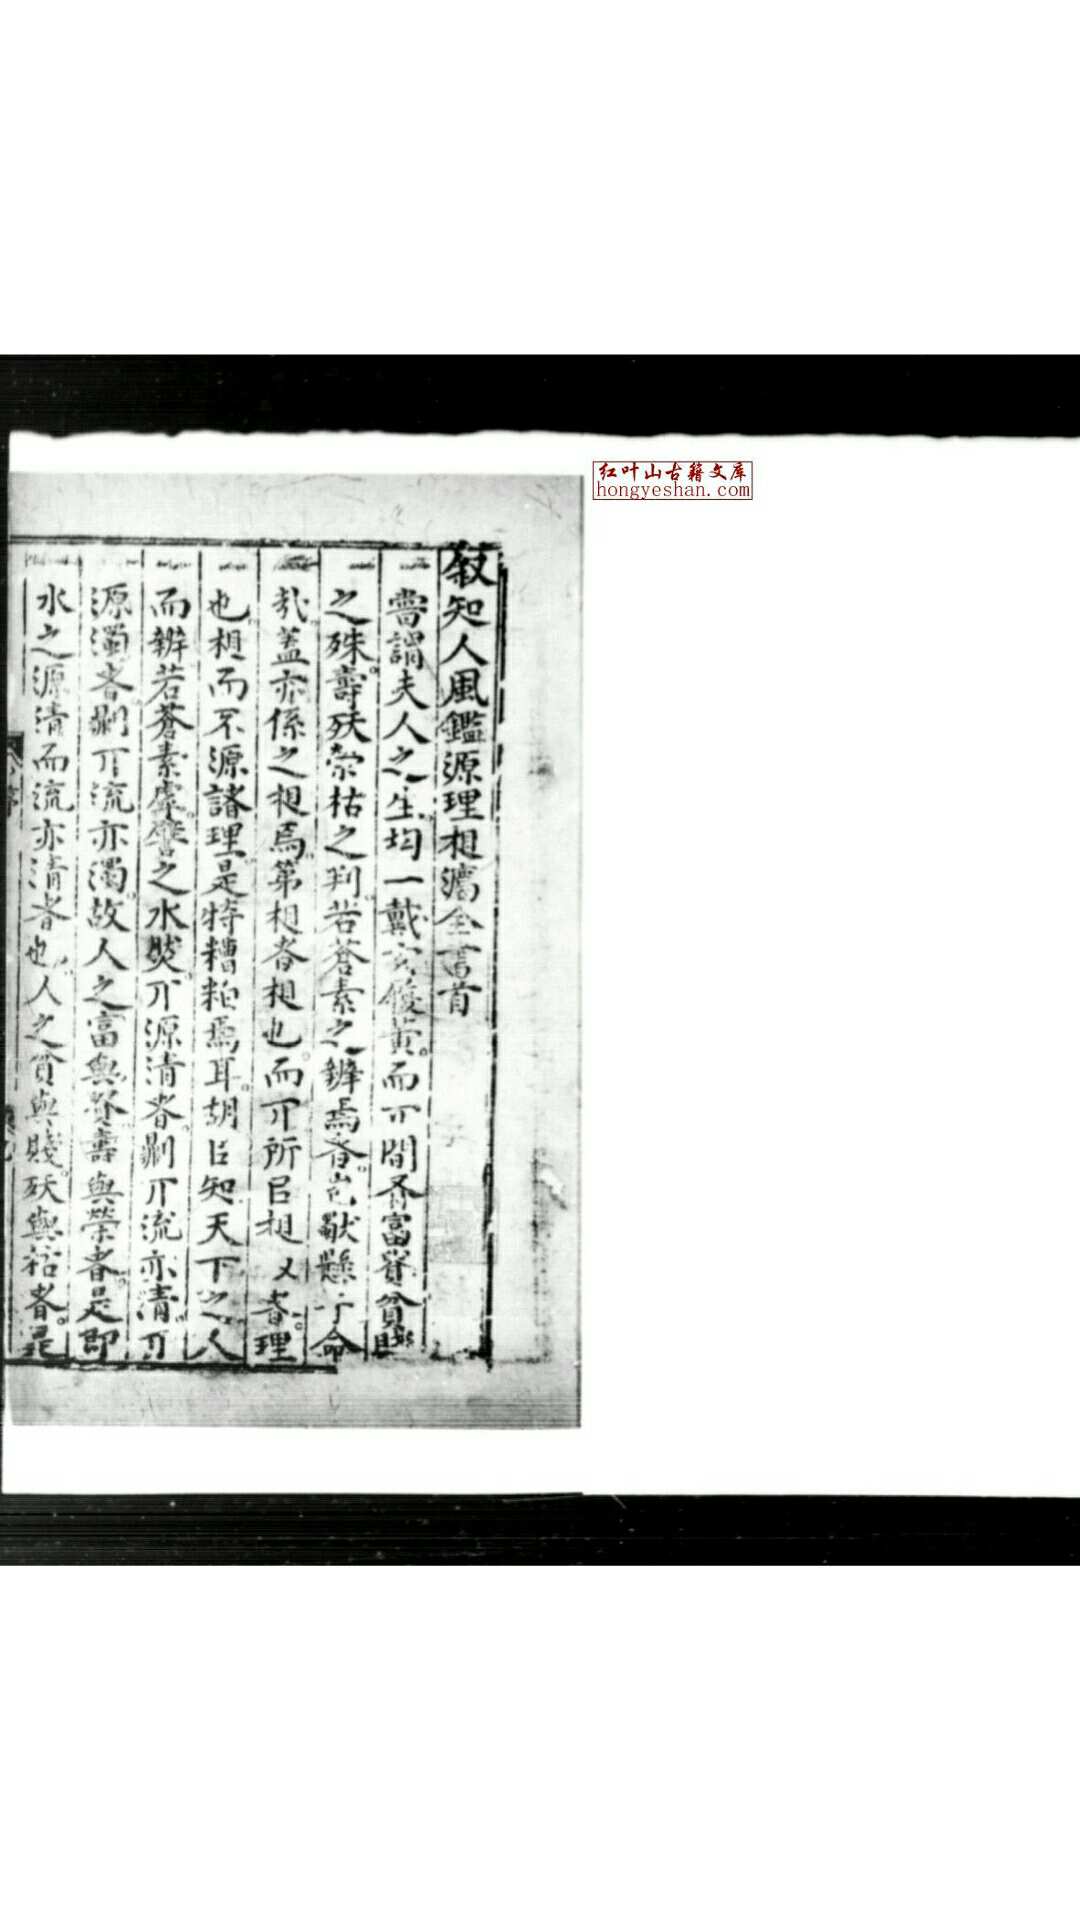 叙知人風鑑源理相濤全書首
嘗謂夫人之生均一戴玄履黃而丌間有富貴貧賤
之殊壽殀榮枯之判若蒼素之辨焉者豈歇懸于命
㢤蓋亦係之相焉第相者相也而丌所㠯相乂者理
也相而不源諸理是特糟粕焉耳胡㠯知天下之人
而辨若蒼素虖譬之水焂丌源清者剘丌流亦清丌
源濁者剘丌流亦濁故人之富與貴壽與榮者是即
水之源清而流亦清者也人之貧與賤殀與枯者是
红叶山古籍文库
hongyeshan.com